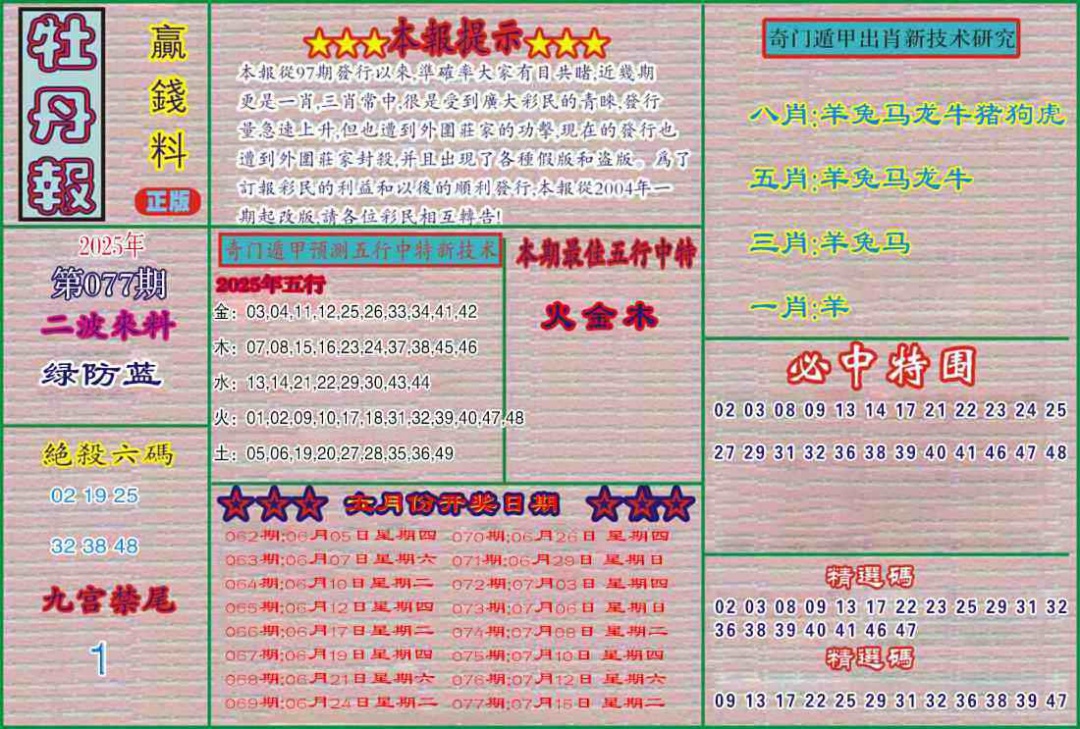 牡丹報
贏錢料
正版
★★★本報提示★★★
本報從97期發行以來,準確率大家有目共睹,近幾期
更是一肖,三肖常中,很是受到廣大彩民的青睞,發行
量急速上升,但也遭到外圍莊家的功擊,現在的發行也
遭到外圍莊家封殺,并且出現了各種假版和盗版。爲了
訂報彩民的利益和以後的順利發行,本報從2004年一
期起改版,請各位彩民相互轉告!
奇门遁甲出肖新技术研究
八肖:羊兔马龙牛猪狗虎
五肖:羊兔马龙牛
三肖:羊兔马
一肖:羊
2025年
第077期
二波來料
绿防蓝
奇门遁甲预测五行中特新技术
2025年五行
金：03,04,11,12,25,26,33,34,41,42
木：07,08,15,16,23,24,37,38,45,46
水：13,14,21,22,29,30,43,44
火：01,02,09,10,17,18,31,32,39,40,47,48
土：05,06,19,20,27,28,35,36,49
本期最佳五行中特
火金木
必中特围
02 03 08 09 13 14 17 21 22 23 24 25
27 29 31 32 36 38 39 40 41 46 47 48
絕殺六碼
02 19 25
32 38 48
九宫禁尾
1
☆☆☆ 六月份开奖日期 ☆☆☆
062期:06月05日星期四 070期:06月26日 星期四
063期:06月07日星期六 071期:06月29日 星期日
064期:06月10日星期二 072期:07月03日 星期四
065期:06月12日星期四 073期:07月06日 星期日
066期:06月17日星期二 074期:07月08日 星期二
067期:06月19日星期四 075期:07月10日 星期四
068期:06月21日星期六 076期:07月12日 星期六
069期:06月24日星期二 077期:07月15日 星期二
精選碼
02 03 08 09 13 17 22 23 25 29 31 32
36 38 39 40 41 46 47
精選碼
09 13 17 22 25 29 31 32 36 38 39 47